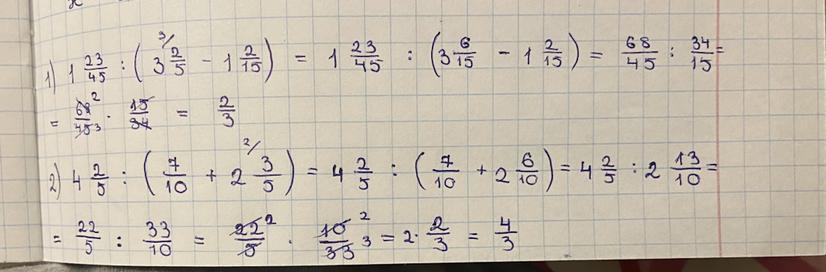 1) 1 23/45 : (3 2/5 - 1 2/15) = 1 23/45 : (3 6/15 - 1 2/15) = 68/45 : 34/15 =
= 68/45 · 15/34 = 2/3
2) 4 2/5 : (7/10 + 2 3/5) = 4 2/5 : (7/10 + 2 6/10) = 4 2/5 : 2 13/10 =
= 22/5 : 33/10 = 22/5 · 10/33 = 2 · 2/3 = 4/3